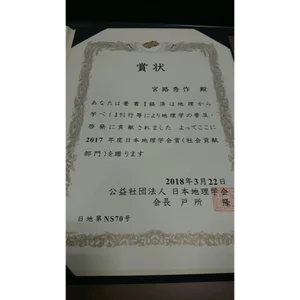 賞状
宮路秀作 殿
あなたは著書『経済は地理から
学べ!』刊行等により地理学の普及・
啓発に貢献されました よってここに
2017 年度日本地理学会賞(社会貢献
部門)を贈ります
2018年3月22日
公益社団法人 日本地理学会
会長 戸所 隆
日地第NS70号